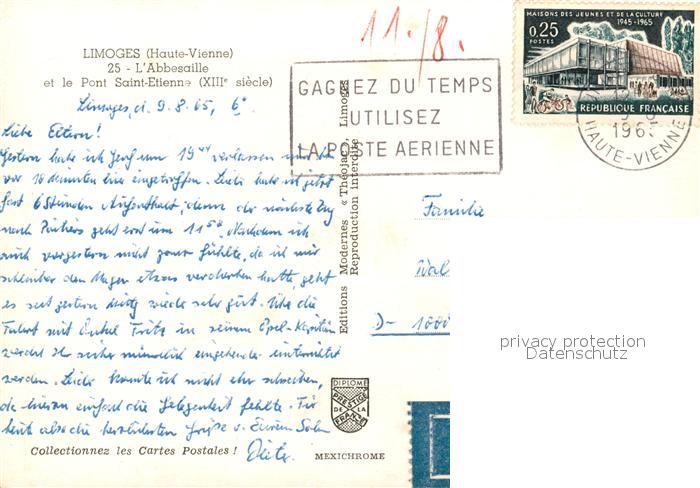 LIMOGES (Haute-Vienne)
25 - L'Abbesaille
et le Pont Saint-Etienne (XIIIe siècle)
11./8.
MAISONS DES JEUNES ET DE LA CULTURE
1945-1965
0,25
POSTES
RÉPUBLIQUE FRANÇAISE
GAGNEZ DU TEMPS
UTILISEZ
LA POSTE AERIENNE
1965
HAUTE-VIENNE
Limoges, d. 9.8.65, 6°
Liebe Eltern!
Gestern habe ich Genf um 19 verlassen und
vor 10 Minuten hier eingetroffen. Leider habe ich jetzt
fast 6 Stunden Aufenthalt, denn der nächste Zug
nach Poitiers geht erst um 11 58. Nachdem ich
mich vorgestern nicht ganz fühlte, da ich mir
scheinbar den Magen etwas verdorben hatte, geht
es seit gestern Mittag wieder sehr gut. Über die
Fahrt mit Onkel Fritz in seinem Opel-Kapitän
werdet Ihr sicher mündlich eingehender unterrichtet
werden. Leider konnte ich nicht eher schreiben,
da hieran einfach die Gelegenheit fehlte. Für
heute also die herzlichsten Grüße v. Eurem Sohn
Dieter
Editions Modernes « Théojac », Limoges
Reproduction Interdite
Familie
Wal
D- 1000
privacy protection
Datenschutz
DIPLOME
PRESTIGE
DE LA
FRANCE
Collectionnez les Cartes Postales !
MEXICHROME